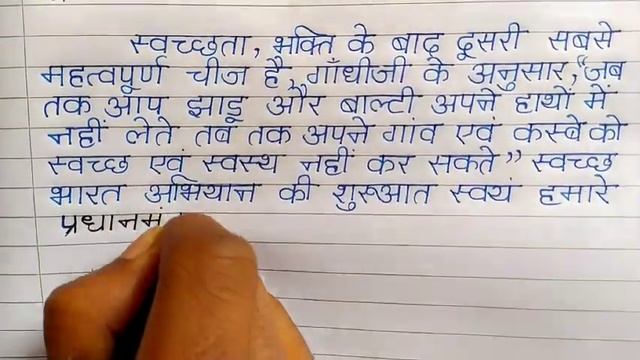 स्वच्छता, भक्ति के बाद दूसरी सबसे
महत्वपूर्ण चीज है, गाँधीजी के अनुसार, "जब
तक आप झाडू और बाल्टी अपने हाथों में
नहीं लेते तब तक अपने गांव एवं कस्बे को
स्वच्छ एवं स्वस्थ नहीं कर सकते" स्वच्छ
भारत अभियान की शुरूआत स्वयं हमारे
प्रधानमं